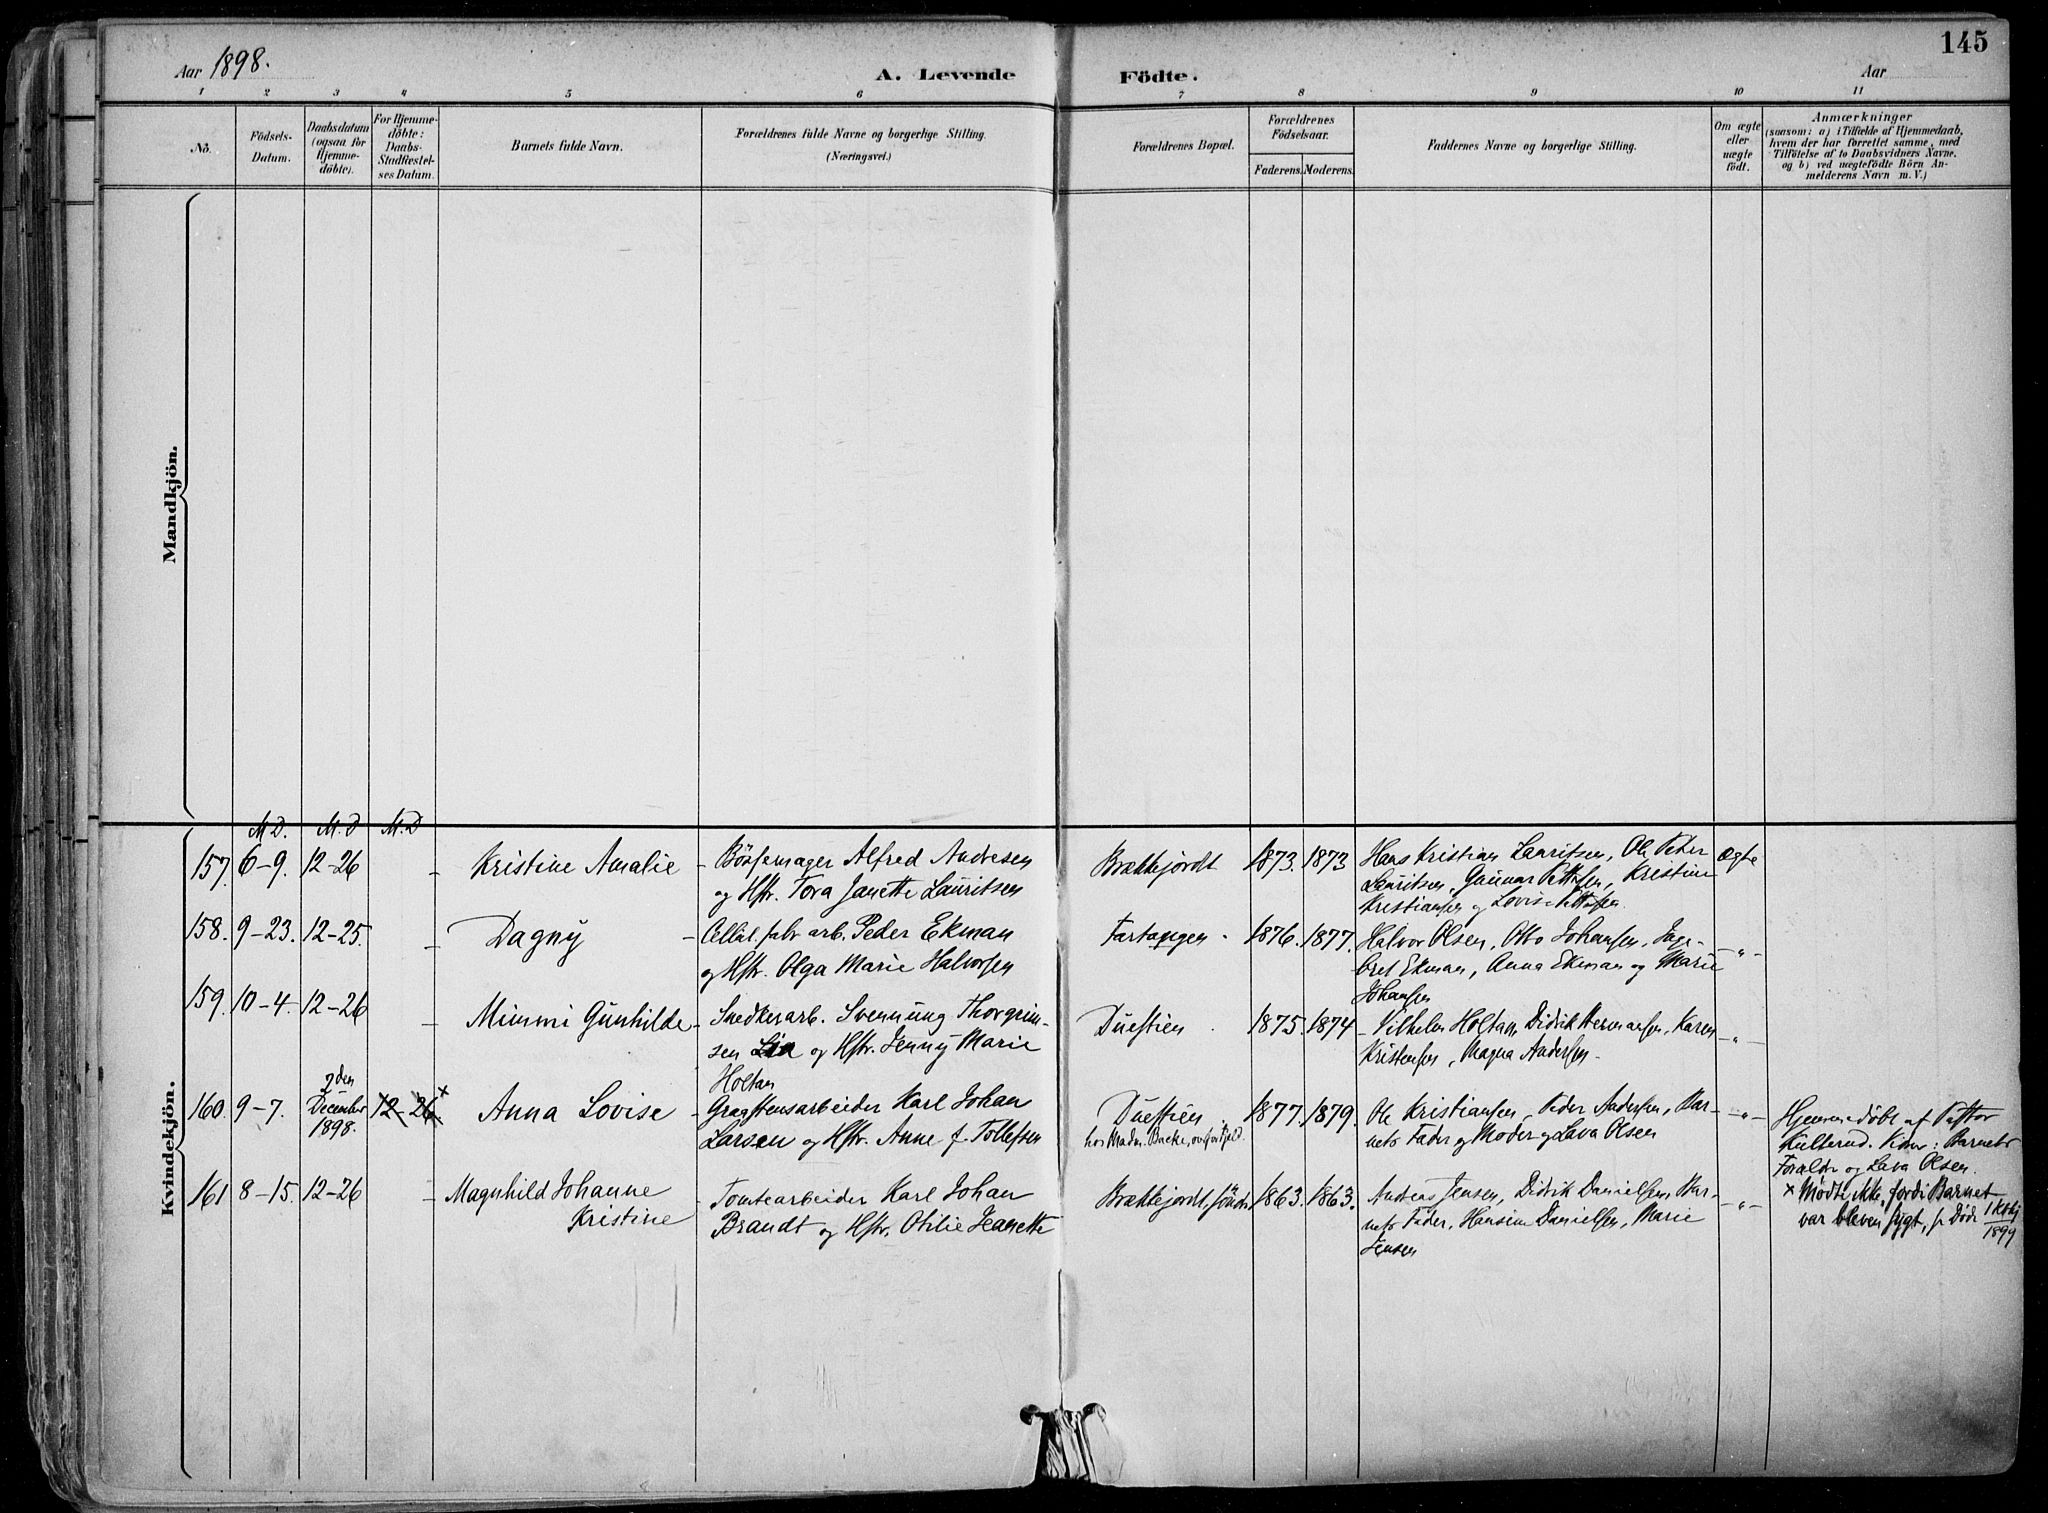 145
Aar 1898.
A. Levende
Födte.
Aar
1 2 3 4 5 6 7 8 9 10 11
No.
Födsels-
Datum.
Daabsdatum
(ogsaa for
Hjemme-
döbte).
For Hjemme-
döbte:
Daabs-
Stadfæstel-
ses Datum.
Barnets fulde Navn.
Forældrenes fulde Navne og borgerlige Stilling.
(Næringsvei.)
Forældrenes Bopæl.
Forældrenes
Födselsaar.
Faderens. Moderens.
Faddernes Navne og borgerlige Stilling.
Om ægte
eller
uægte
födt.
Anmærkninger
(saasom: a) i Tilfælde af Hjemmedaab,
hvem der har forrettet samme, med
Tilföielse af to Daabsvidners Navne,
og b) ved uægtefödte Börn An-
melderens Navn m. V.)
Mandkjön.
Kvindekjön.
M D. M. D M. D
157. 6-9. 12-26 - Kristine Amalie - Bösfermager Alfred Andresen
og Hstr. Tora Janette Lauritsen
Brækkejordt 1873. 1873
Hans Kristian Lauritsen, Ole Peter
Lauritsen, Gunnar Pettersen, Kristine
Kristiansen og Lovise Pettersen
Ægte
158. 9-23. 12-25. - Dagny - Cellul. fabr arb. Peder Ekman
og Hstr. Olga Marie Halvorsen
Fartangen - 1876. 1877.
Halvor Olsen, Otto Johansen, Inge-
bret Ekman, Anna Ekman og Marie
Johansen
-"-
159. 10-4. 12-26 - Mimmi Gunhilde - Snedkerarb. Svennung Thorgrim-
sen Lia og Hstr. Jenny Marie
Holtan
Duestien . 1875. 1874 -
Vilhelm Holtan, Didrik Hermansen, Karen
Kristensen, Magna Andersen -
-"-
160. 9-7. 2den
December
1898. 12-26 x Anna Lovise - Gragstensarbeider Karl Johan
Larsen og Hstr. Anne f. Tollefsen
Duestien
hos Madm. Bakke,
1877. 1879.
Ole Kristiansen, Peder Andersen, Bar-
nets Fader og Moder og Lava Olsen
-"-
Hjemmedöbt af Pastor
Kulterud. Vidner: Barnets
Foræld. og Lava Olsen.
x Mödte ikke, fordi Barnet
var bleven sygt, Död
1899
161 8-15. 12-26 - Magnhild Johanne
Kristine
- Tomtearbeider Karl Johan
Brandt og Hstr. Otilie Jeanette
Brækkejordt, söndre 1863. 1863.
Andreas Jensen, Didrik Danielsen, Bar-
nets Fader, Hansine Danielsen, Marie
Jensen
-"-